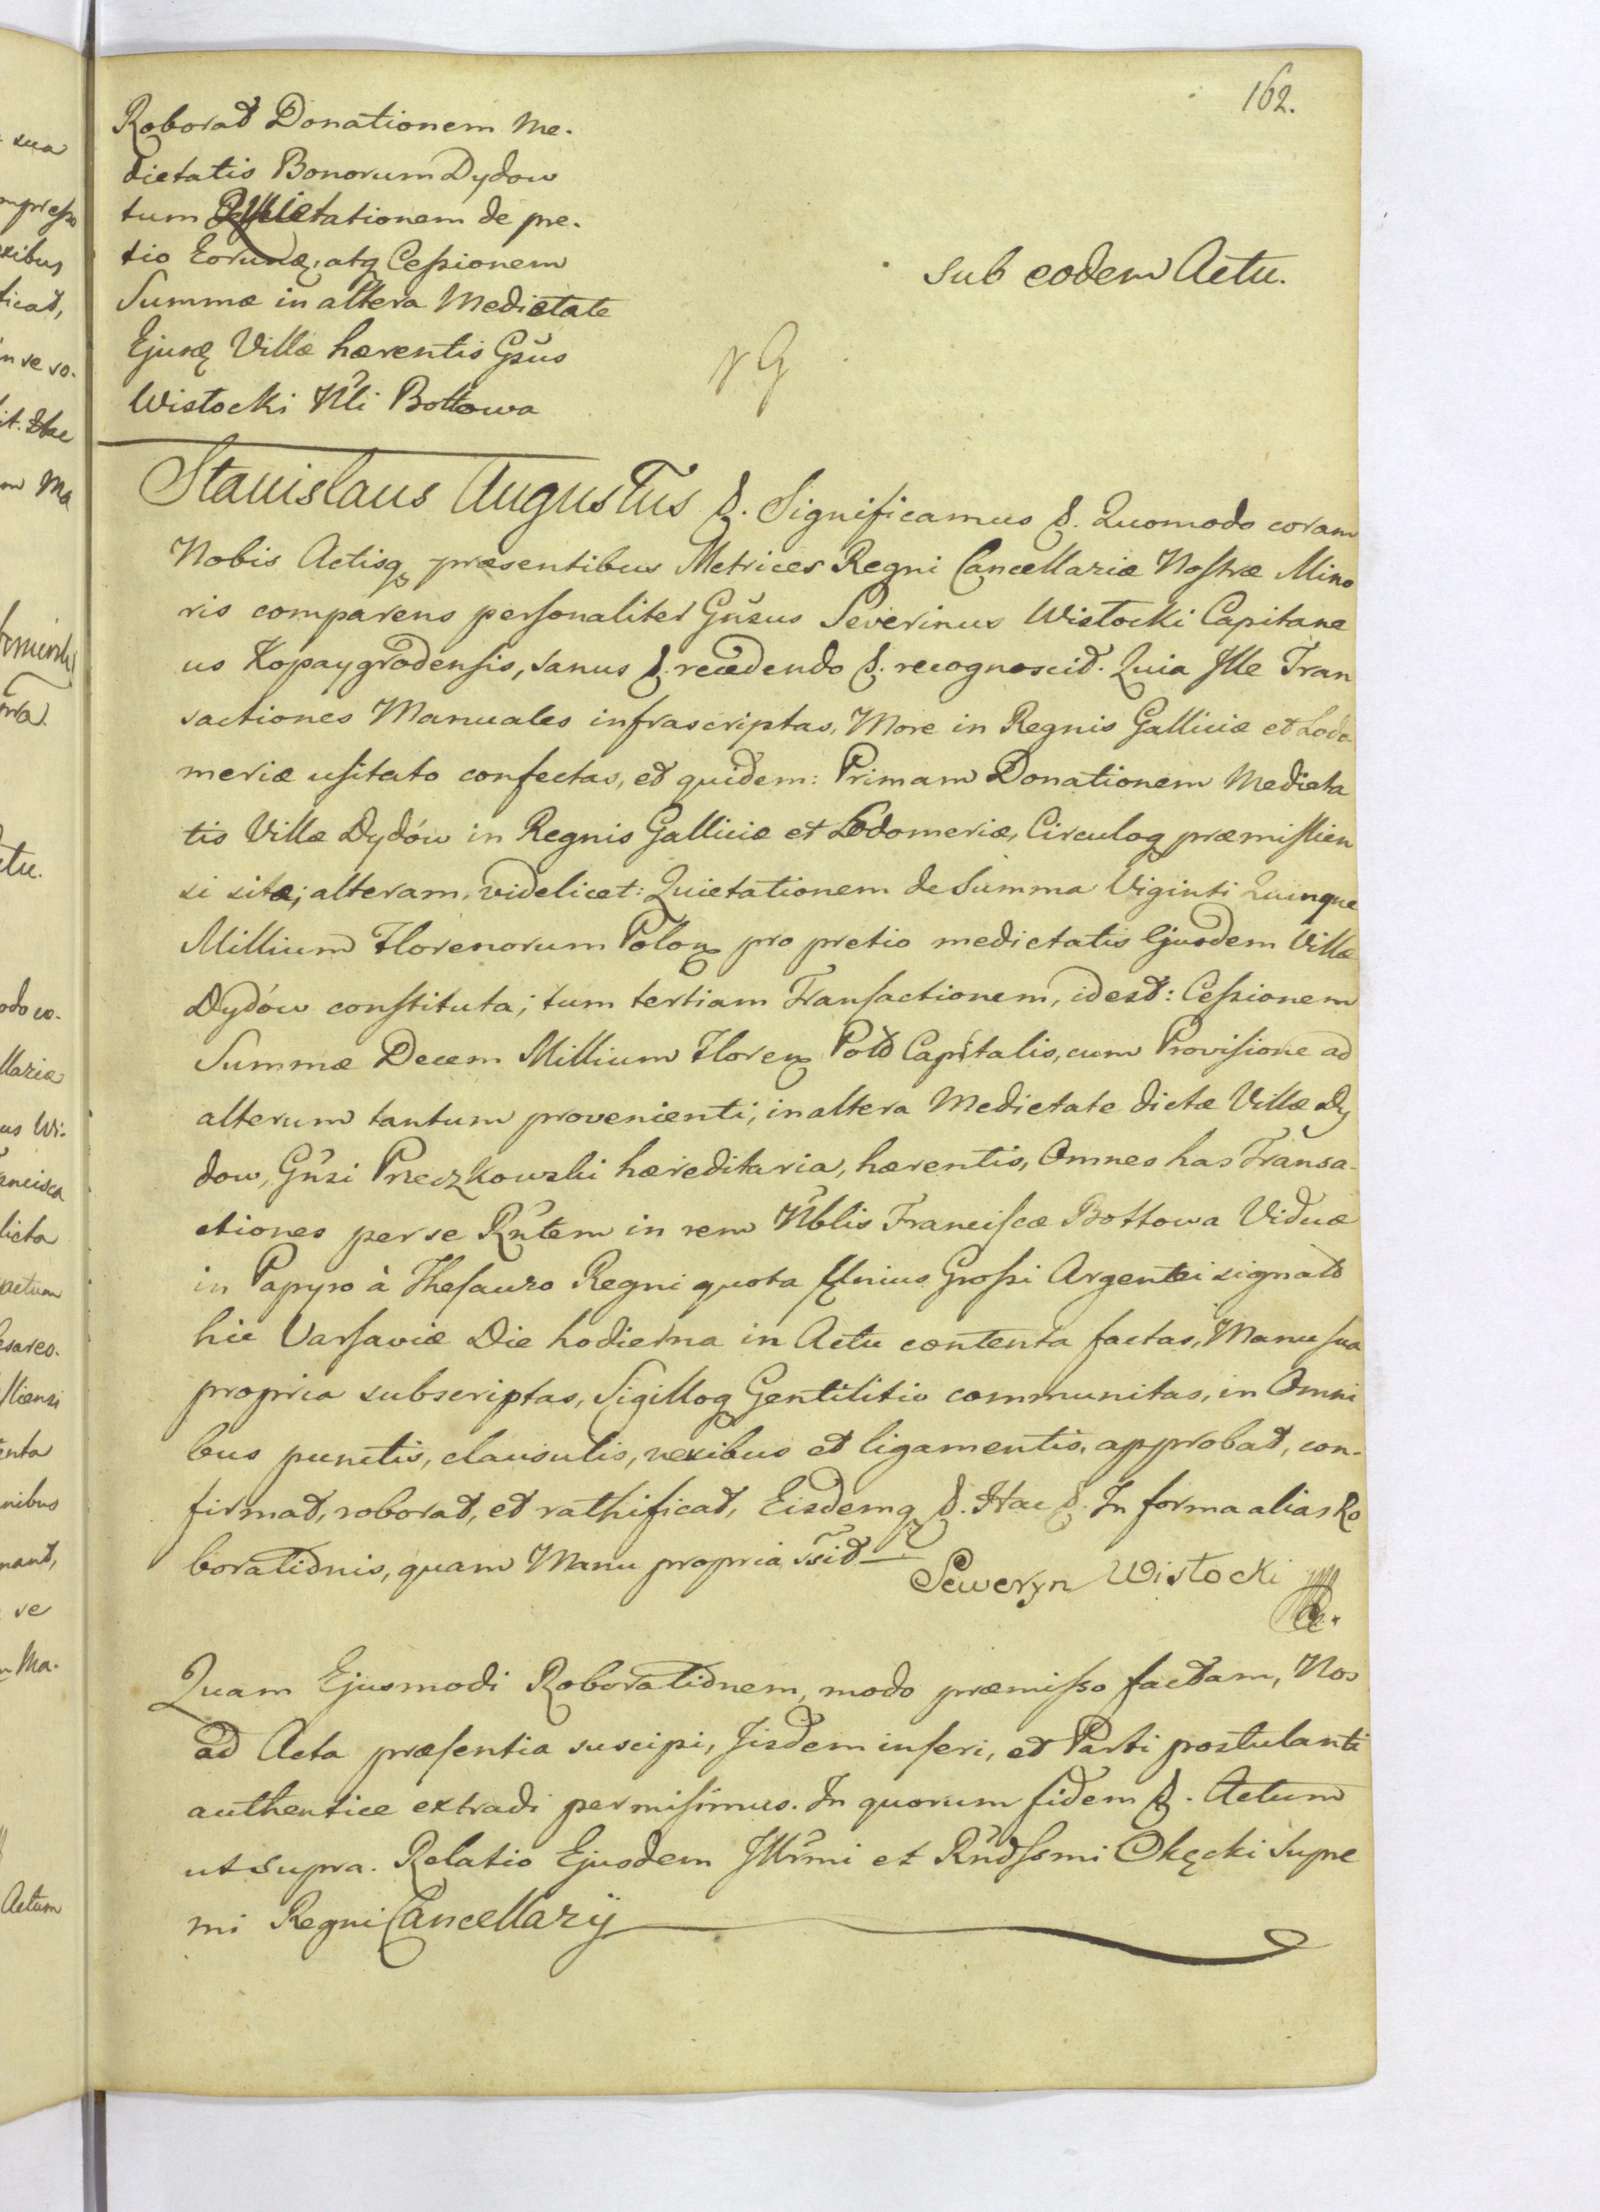 162.
Roborat Donationem Me-
dietatis Bonorum Dydow
tum Quietationem de pre-
tio Eorundę, atq Cessionem
Summæ in altera Medietate
Ejusdę Villæ hærentis Gsus
Wisłocki Nli Bottowa
sub eodem Actu.
Stanislaus Augustus &. Significamus &. Quomodo coram
Nobis Actisq præsentibus Metrices Regni Cancellariæ Nostræ Mino
ris comparens personaliter Gnsus Severinus Wisłocki Capitane
us Kopaygrodensis, sanus &. recedendo &. recognoscit. Quia Ille Tran
sactiones Manuales infrascriptas, More in Regnis Galliciæ et Lodo
meriæ usitato confectas, et quidem: Primam Donationem Medieta
tis Villæ Dydów in Regnis Galliciæ et Lodomeriæ, Circuloq præmislien
si sitæ; alteram, videlicet: Quietationem de Summa Viginti Quinque
Millium Florenorum Polon pro pretio medietatis Ejusdem Villæ
Dydów constituta; tum tertiam Transactionem, idest: Cessionem
Summæ Decem Millium Floren Pold Capitalis, cum Provisione ad
alterum tantum provenienti, in altera Medietate dictæ Villæ Dy
dow, Gnsi Preczkowski hæreditaria, hærentis, Omnes has Transa-
ctiones per se Rntem in rem Nblis Franciscæ Bottowa Viduæ
in Papyro à Thesauro Regni quota Unius Grossi Argentei signato
hic Varsaviæ Die hodierna in Actu contenta factas, Manu sua
propria subscriptas, Sigilloq Gentilitio communitas, in Omni
bus punctis, clausulis, nexibus et ligamentis, approbat, con-
firmat, roborat, et rathificat, Eisdemq &. Hac &. In forma alias Ro
borationis, quam Manu propria ssit
Seweryn Wisłocki
Quam Ejusmodi Roborationem, modo præmisso factam, Nos
ad Acta præsentia suscipi, Iisdem inseri, et Parti postulanti
authentice extradi permisimus. In quorum fidem &. Actum
ut supra. Relatio Ejusdem Illrmi et Rndssmi Okęcki Supre
mi Regni Cancellarÿ